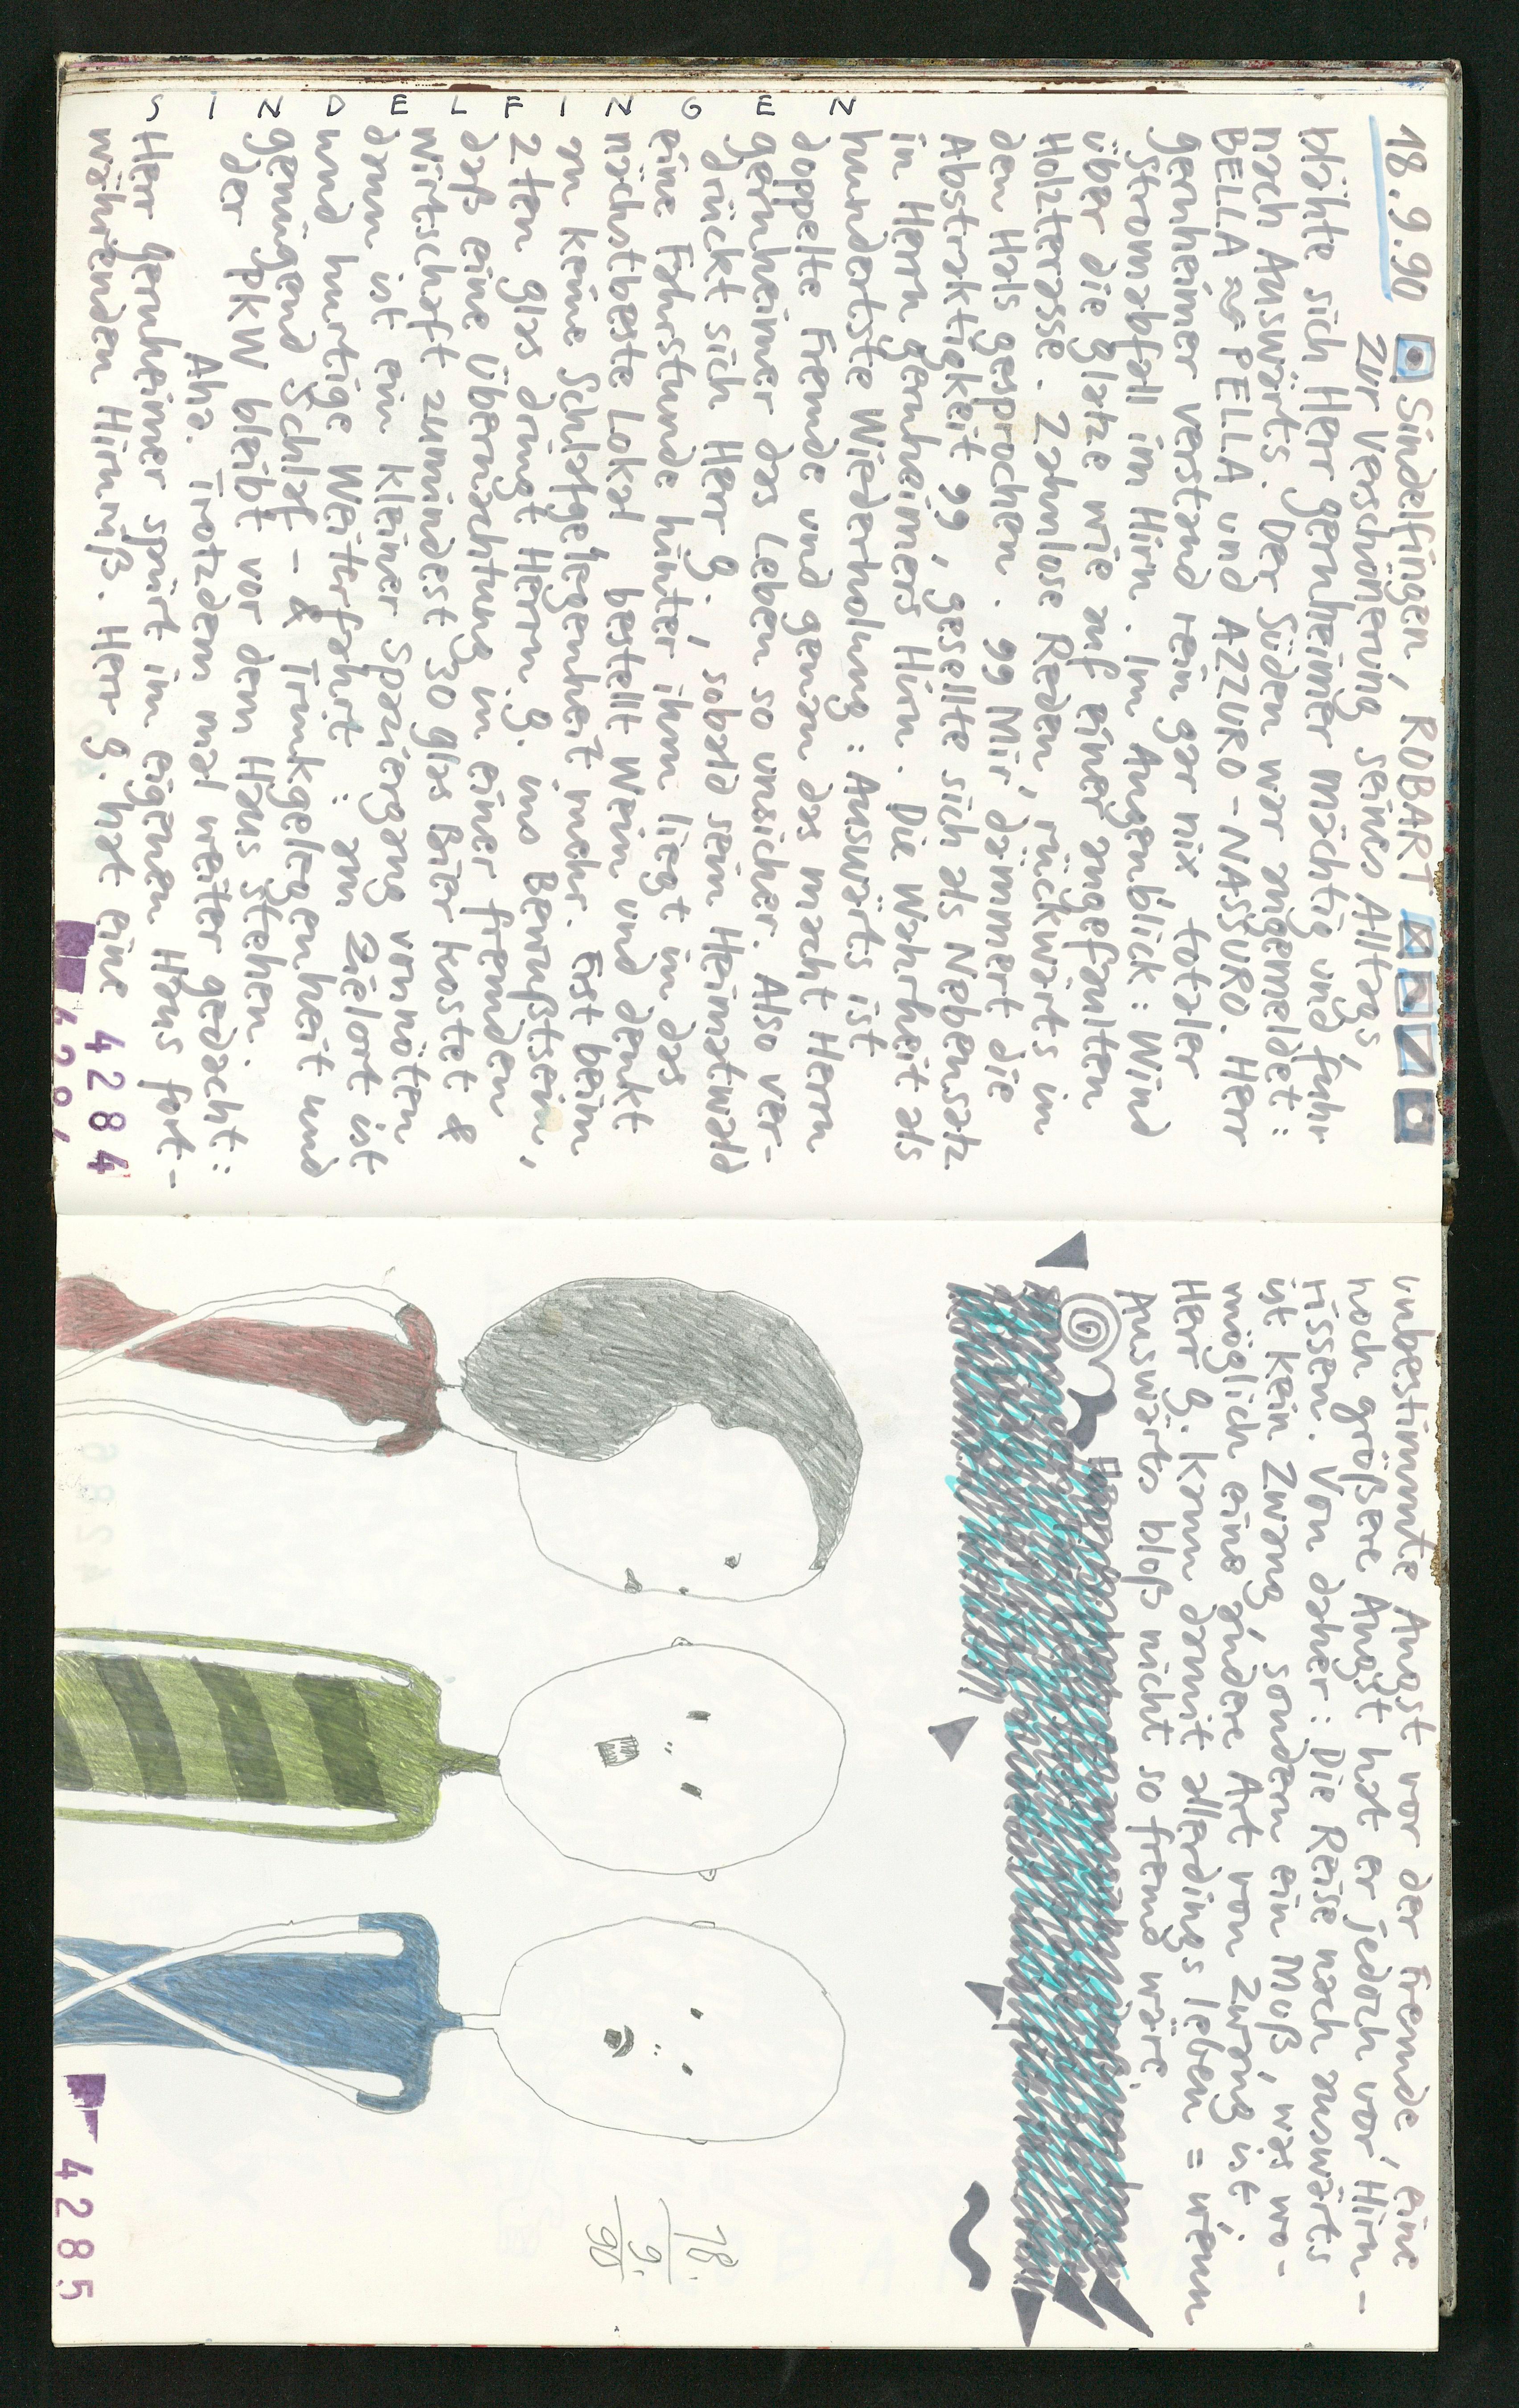 18.9.90 Sindelfingen, ROBART
Zur Verschönerung seines Alltags,
blähte sich Herr Gernheimer mächtig und fuhr
nach Auswärts. Der Süden war angemeldet:
BELLA as PELLA und AZZURO-NASSURO. Herr
Gernheimer verstand rein gar nix totaler
Stromabfall im Hirn. Im Augenblick: Wind
über die Glatze wie auf einer angefaulten
Holzterasse. Zahnlose Reden, rückwärts in
den Hals gesprochen. 99 Mir dämmert die
Abstraktigkeit 99, gesellte sich als Nebensatz
in Herrn Gernheimers Hirn. Die Wahrheit als
hundertste Wiederholung: Auswärts ist
doppelte Fremde und genau das macht Herrn
Gernheimer das Leben so unsicher. Also ver-
drückt sich Herr G., sobald sein Heimatwald
eine Fahrstunde hinter ihm liegt in das
nächstbeste Lokal bestellt Wein und denkt
an keine Schlafgelegenheit mehr. Erst beim
2ten Glas dringt Herrn G. ins Bewußtsein,
daß eine Übernachtung in einer fremden
Wirtschaft zumindest 30 Glas Bier kostet &
dann ist ein kleiner Spaziergang vonnöten
und hurtige Weiterfahrt: am Zielort ist
genügend Schlaf- & Trinkgelegenheit und
der PKW bleibt vor dem Haus stehen.
Aha. Trotzdem mal weiter gedacht:
Herr Gernheimer spürt im eigenen Haus fort-
währenden Hirnriß. Herr G. hat eine
SINDELFINGEN
4284
unbestimmte Angst vor der Fremde, eine
noch größere Angst hat er jedoch vor Hirn-
rissen. Von daher: Die Reise nach auswärts
ist kein Zwang, sondern ein Muß, was wo-
möglich eine andere Art von Zwang ist,
Herr G. kann damit allerdings leben = wenn
Auswärts bloß nicht so fremd wäre.
18.
9.
90
4285